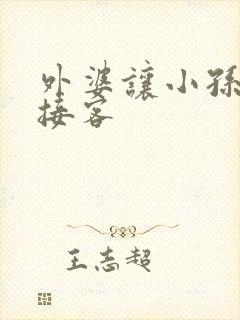 外婆讓小孫
接客
王志超